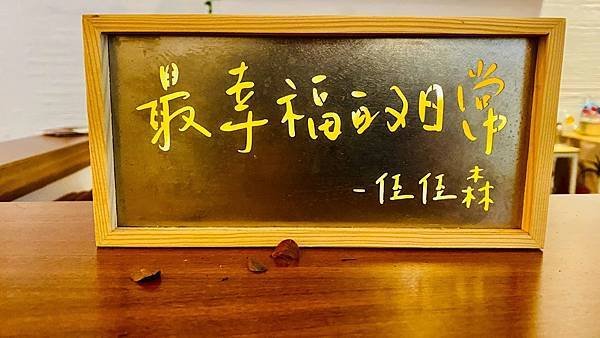 最幸福的日常
-任任森